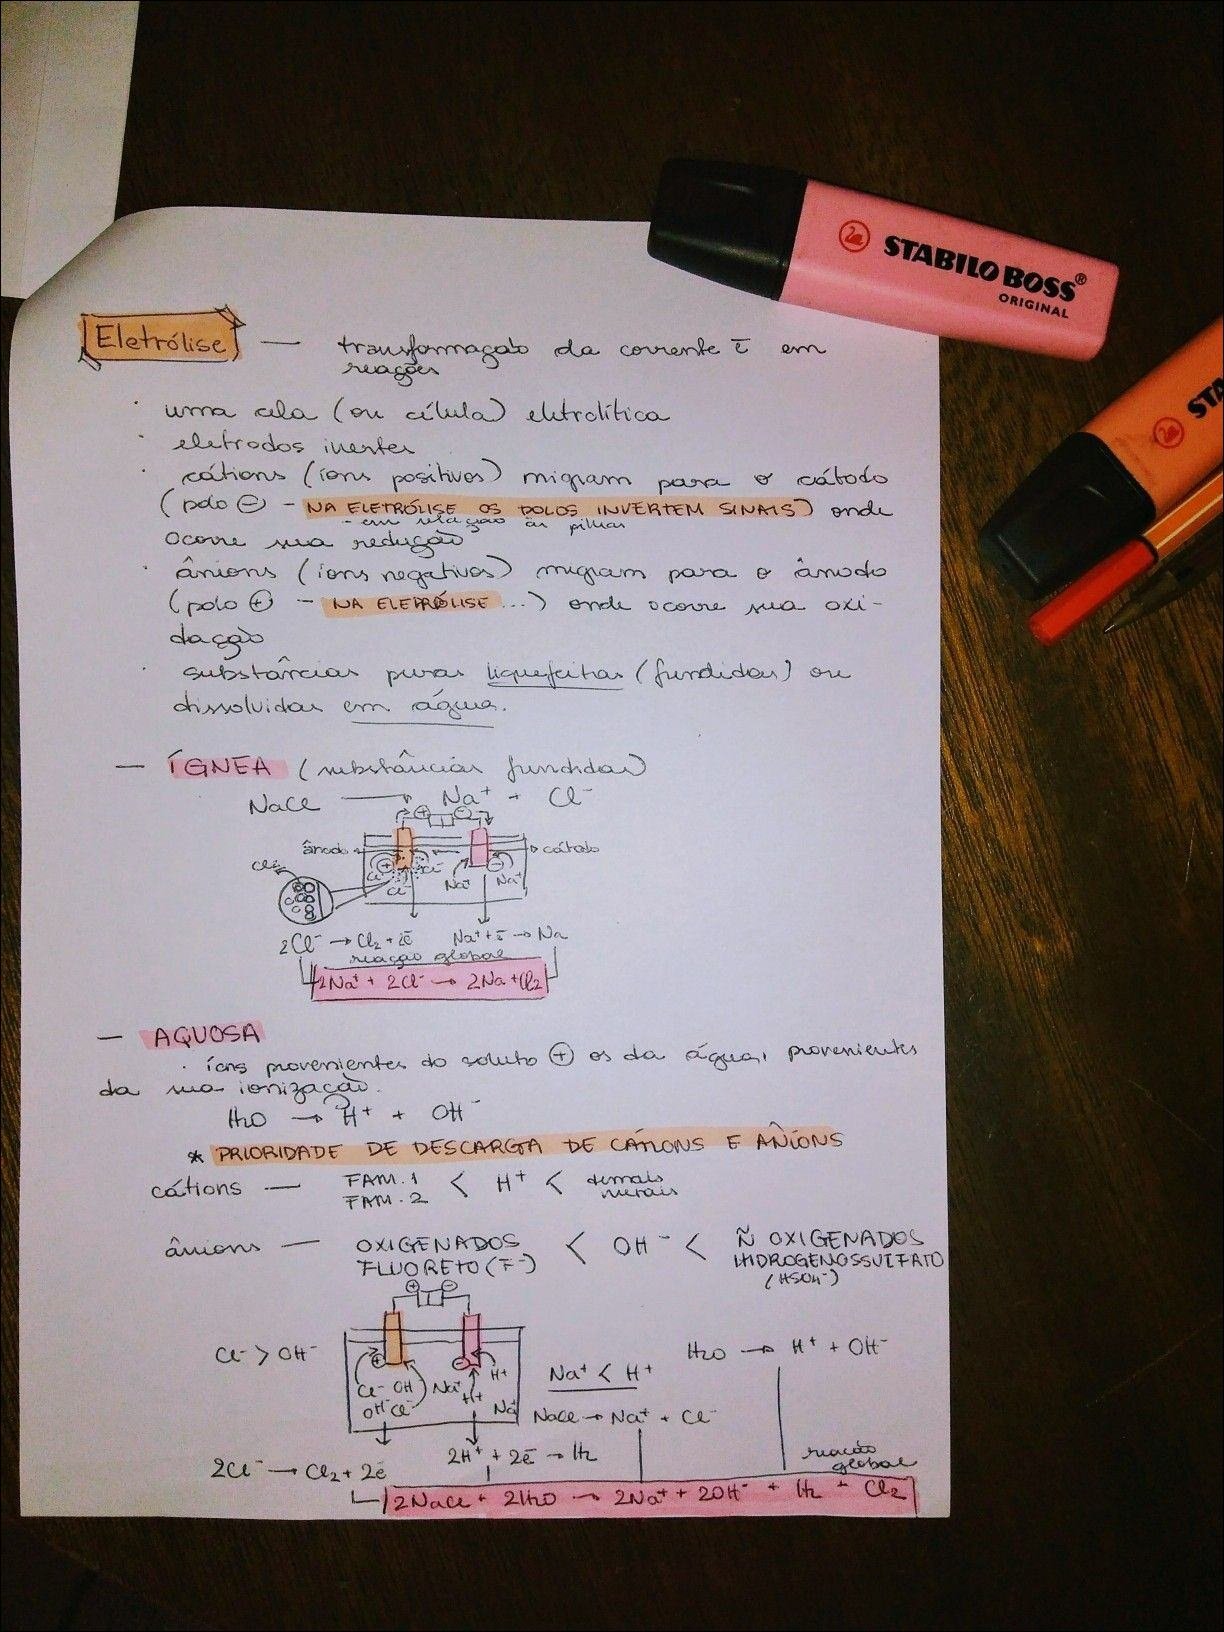 STABILO BOSS®
ORIGINAL
STA
Eletrólise — transformação da corrente ē em
reações
· uma cela (ou célula) eletrolítica
· eletrodos inertes
· cátions (íons positivos) migram para o cátodo
(polo ⊖ - NA ELETRÓLISE OS POLOS INVERTEM SINAIS) onde
- em relação às pilhas
ocorre sua redução
· ânions (íons negativos) migram para o ânodo
(polo ⊕ - NA ELETRÓLISE...) onde ocorre sua oxi-
dação
· substâncias puras liquefeitas (fundidas) ou
dissolvidas em água.
— ÍGNEA (substâncias fundidas)
NaCl → Na⁺ + Cl⁻
⊕ ⊖
ânodo cátodo
Cl₂ ⊕ Cl⁻ ⊖
Cl⁻ Cl⁻ Na⁺ Na⁺
2Cl⁻ → Cl₂ + 2ē Na⁺ + ē → Na
reação global
2Na⁺ + 2Cl⁻ → 2Na + Cl₂
— AQUOSA
· íons provenientes do soluto ⊕ os da água, provenientes
da sua ionização.
H₂O → H⁺ + OH⁻
* PRIORIDADE DE DESCARGA DE CÁTIONS E ÂNIONS
cátions — FAM. 1 < H⁺ < demais
FAM. 2 metais
ânions — OXIGENADOS < OH⁻ < Ñ OXIGENADOS
FLUORETO (F⁻) HIDROGENOSSULFATO
(HSO₄⁻)
⊕ ⊖
Cl⁻ > OH⁻ H₂O → H⁺ + OH⁻
⊕ ⊖ H⁺ Na⁺ < H⁺
Cl⁻ OH Na⁺ H⁺
OH⁻ Cl⁻ Na⁺ NaCl → Na⁺ + Cl⁻
2Cl⁻ → Cl₂ + 2ē 2H⁺ + 2ē → H₂ reação
global
2NaCl + 2H₂O → 2Na⁺ + 2OH⁻ + H₂ + Cl₂